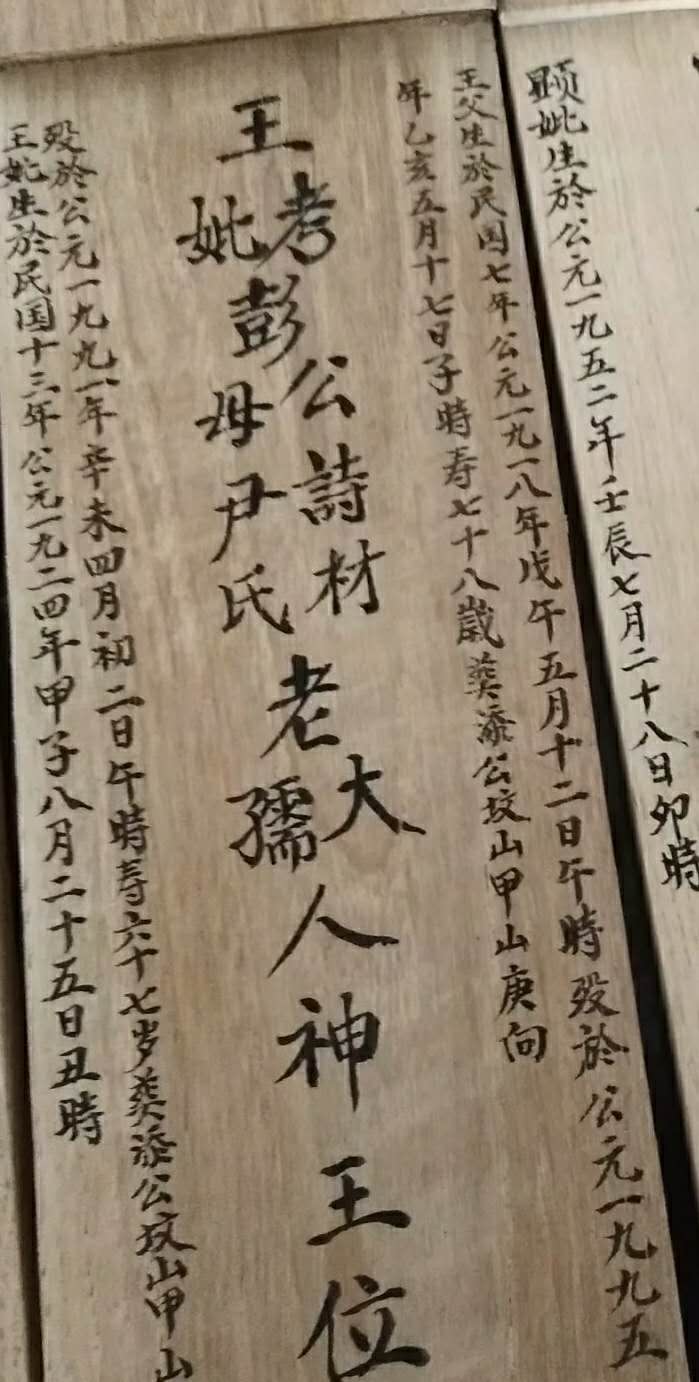 顕妣生於公元一九五二年壬辰七月二十八日卯時
王父生於民国七年公元一九一八年戊午五月十二日午時殁於公元一九九五
年乙亥五月十七日子時寿七十八歲葬添公坟山甲山庚向
王
考
妣
彭
公詩材
母尹氏
老
大
孺
人神王位
王妣生於民国十三年公元一九二四年甲子八月二十五日丑時
殁於公元一九九一年辛未四月初二日午時寿六十七岁葬添公坟山甲山